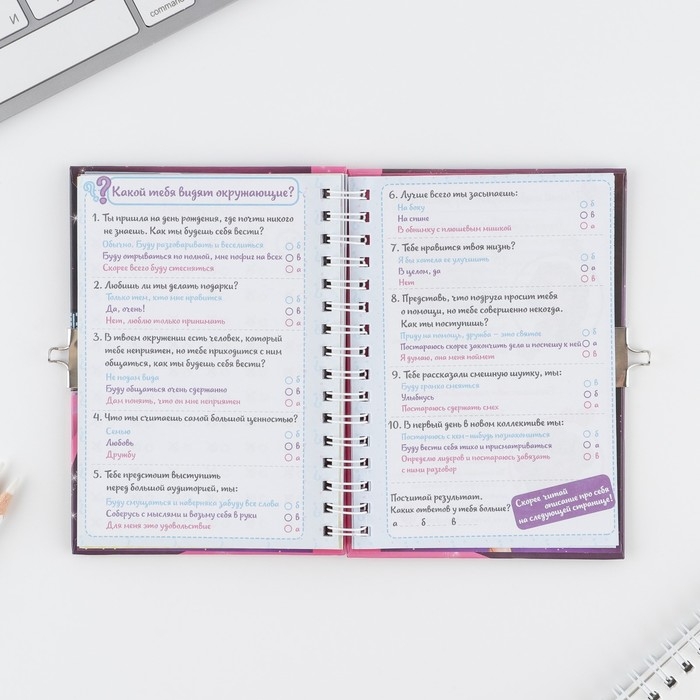 И
command
Какой тебя видят окружающие?
1. Ты пришла на день рождения, где почти никого
не знаешь. Как ты будешь себя вести?
Обычно. Буду разговаривать и веселиться б
Буду отрываться по полной, мне пофиг на всех в
Скорее всего буду стесняться а
2. Любишь ли ты делать подарки?
Только тем, кто мне нравится б
Да, очень! в
Нет, люблю только принимать а
3. В твоем окружении есть человек, который
тебе неприятен, но тебе приходится с ним
общаться, как ты будешь себя вести?
Не подам вида б
Буду общаться очень сдержанно в
Дам понять, что он мне неприятен а
4. Что ты считаешь самой большой ценностью?
Семью б
Любовь в
Дружбу а
5. Тебе предстоит выступить
перед большой аудиторией, ты:
Буду смущаться и наверняка забуду все слова б
Соберусь с мыслями и возьму себя в руки в
Для меня это удовольствие а
6. Лучше всего ты засыпаешь:
На боку б
На спине в
В обнимку с плюшевым мишкой а
7. Тебе нравится твоя жизнь?
Я бы хотела ее улучшить б
В целом, да а
Нет в
8. Представь, что подруга просит тебя
о помощи, но тебе совершенно некогда.
Как ты поступишь?
Приду на помощь, дружба – это святое б
Постараюсь скорее закончить дела и поспешу к ней а
Я думаю, она поймет в
9. Тебе рассказали смешную шутку, ты:
Буду громко смеяться б
Улыбнусь б
Постараюсь сдержать смех а
10. В первый день в новом коллективе ты:
Постараюсь с кем-нибудь познакомиться б
Буду вести себя тихо и присматриваться в
Определю лидеров и постараюсь завязать а
с ними разговор
Посчитай результат.
Каких ответов у тебя больше?
а б в
Скорее читай
описание про себя
на следующей странице!